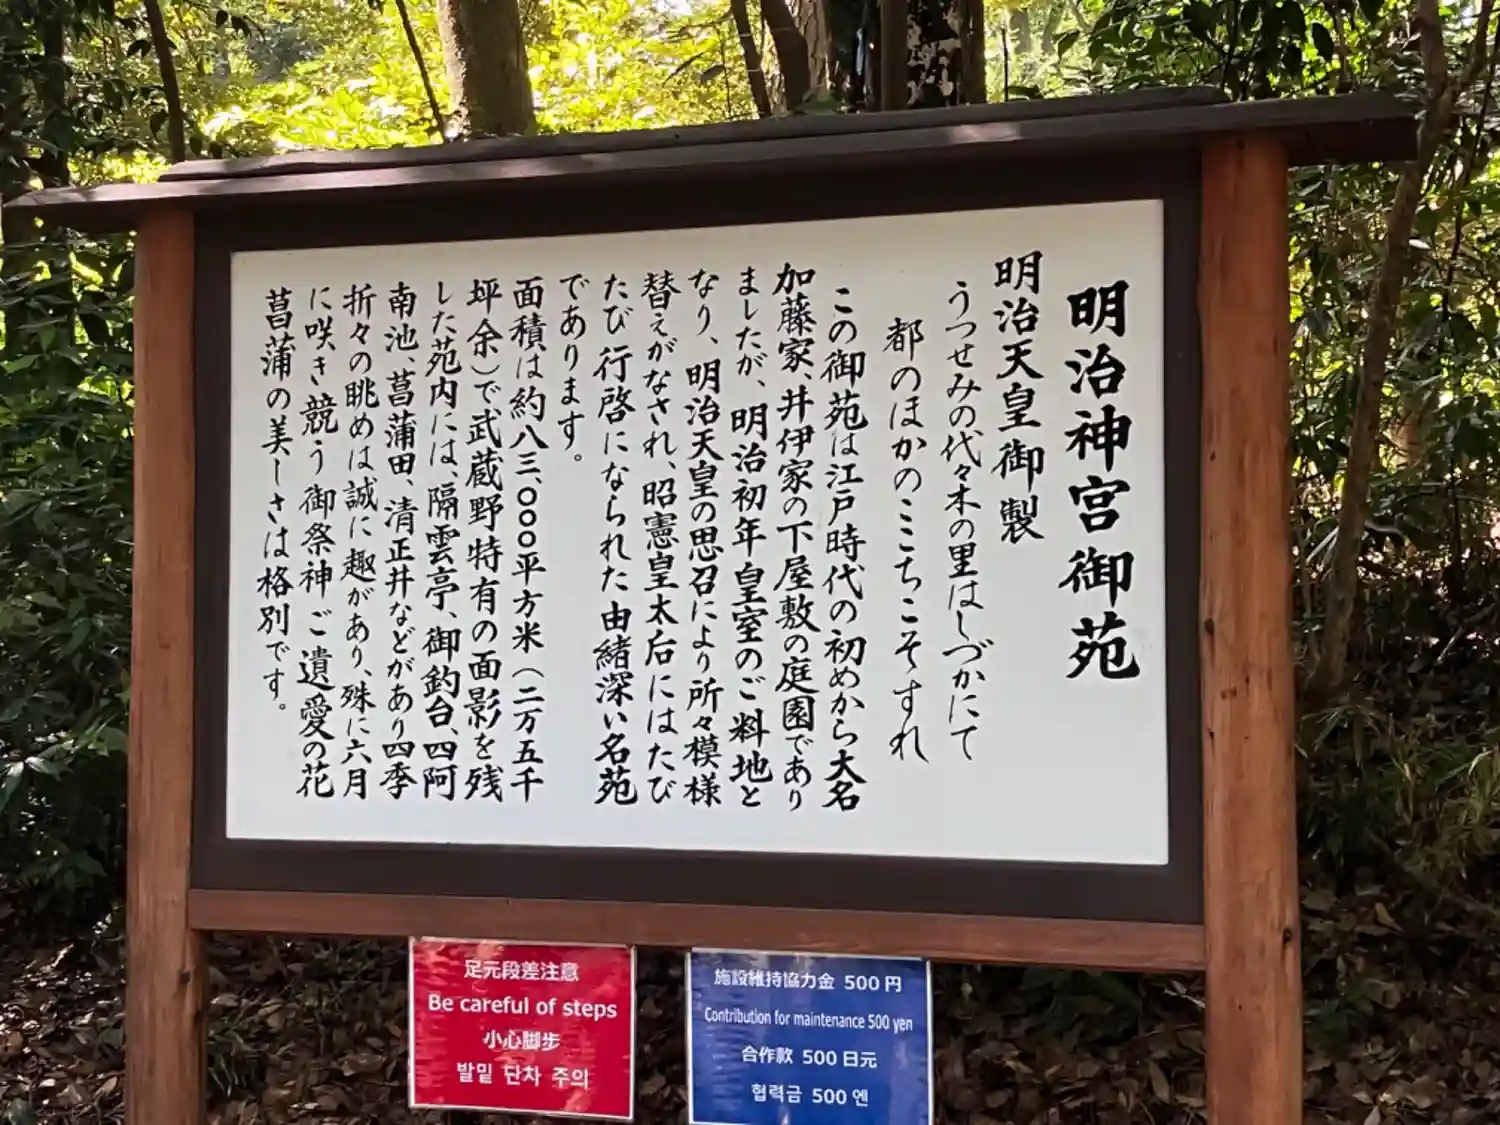 明治神宮御苑
明治天皇御製
うつせみの代々木の里はしづかにて
都のほかのこゝちこそすれ
この御苑は江戸時代の初めから大名
加藤家、井伊家の下屋敷の庭園であり
ましたが、明治初年皇室のご料地と
なり、明治天皇の思召により所々模様
替えがなされ、昭憲皇太后にはたび
たび行啓になられた由緒深い名苑
であります。
面積は約八三、〇〇〇平方米（二万五千
坪余）で武蔵野特有の面影を残
した苑内には、隔雲亭、御釣台、四阿
南池、菖蒲田、清正井などがあり四季
折々の眺めは誠に趣があり、殊に六月
に咲き競う御祭神ご遺愛の花
菖蒲の美しさは格別です。
足元段差注意
Be careful of steps
小心脚步
발밑 단차 주의
施設維持協力金 500円
Contribution for maintenance 500 yen
合作款 500日元
협력금 500엔